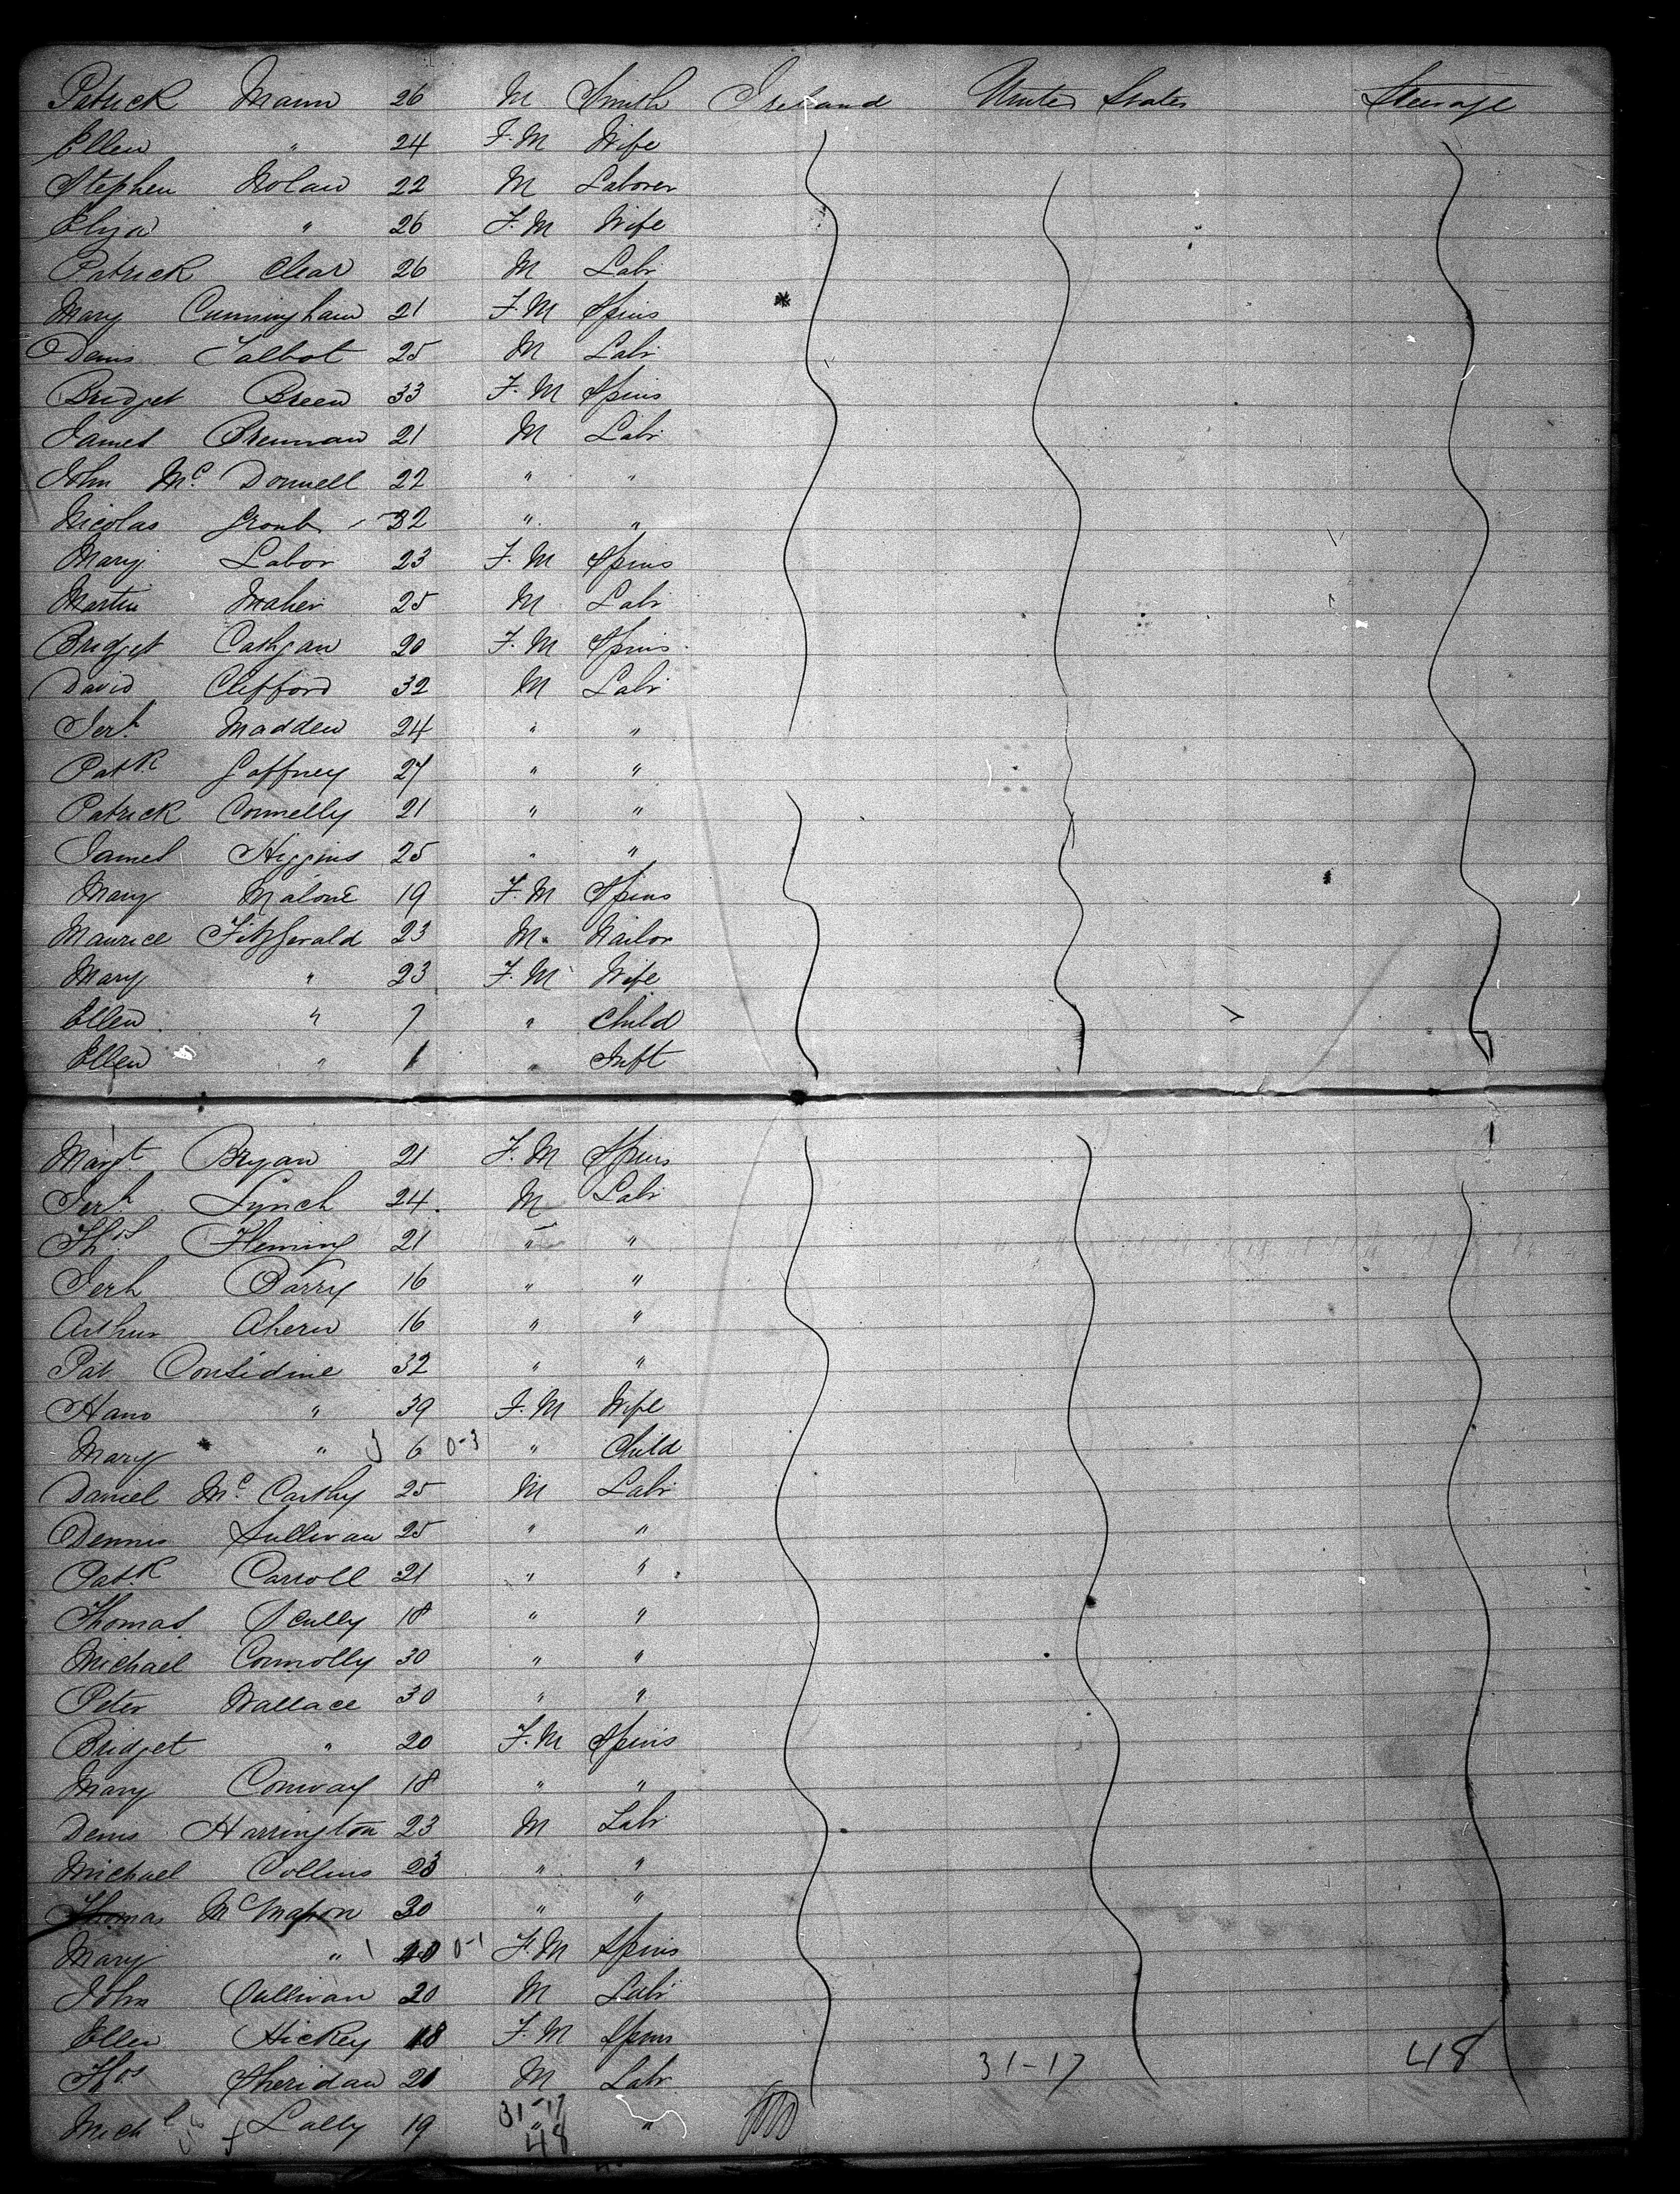 Patrick Mann 26 M Smith Ireland United States Steerage
Ellen " 24 F.M Wife
Stephen Nolan 22 M Laborer
Eliza " 26 F.M Wife
Patrick Clear 26 M Labr
Mary Cunningham 21 F.M Spins
Denis Talbot 25 M Labr
Bridget Breen 33 F.M Spins
James Brennan 21 M Labr
John Mc Donnell 22 " "
Nicolas 32 " "
Mary Labor 23 F.M Spins
Martin Maher 25 M Labr
Bridget 20 F.M Spins
David Clifford 32 M Labr
Jerh Madden 24 " "
Patk Gaffney 27 " "
Patrick Connelly 21 " "
James Higgins 25 " "
Mary Malone 19 F.M Spins
Maurice Fitzgerald 23 M. Nailor
Mary " 23 F.M Wife
Ellen " 7 " Child
Ellen " 1 " Inft
Margt Bryan 21 F.M Spins
Jerh Lynch 24 M Labr
Thos Fleming 21 " "
Jerh Barry 16 " "
Arthur Ahern 16 " "
Pat Considine 32 " "
Hano " 39 F.M Wife
Mary " 6 0-3 " Child
Daniel Mc Carthy 25 M Labr
Dennis Sullivan 25 " "
Patk Carroll 21 " "
Thomas Scully 18 " "
Michael Connolly 30 " "
Peter Wallace 30 " "
Bridget " 20 F.M Spins
Mary Conway 18 " "
Denis Harrington 23 M Labr
Michael Collins 23 " "
Thomas McMahon 30 " "
Mary " 20 0-1 F.M Spins
John Sullivan 20 M Labr
Ellen Hickey 18 F.M Spins
Thos Sheridan 20 M Labr 31-17 48
31-17
Michl Lally 19 " "
48